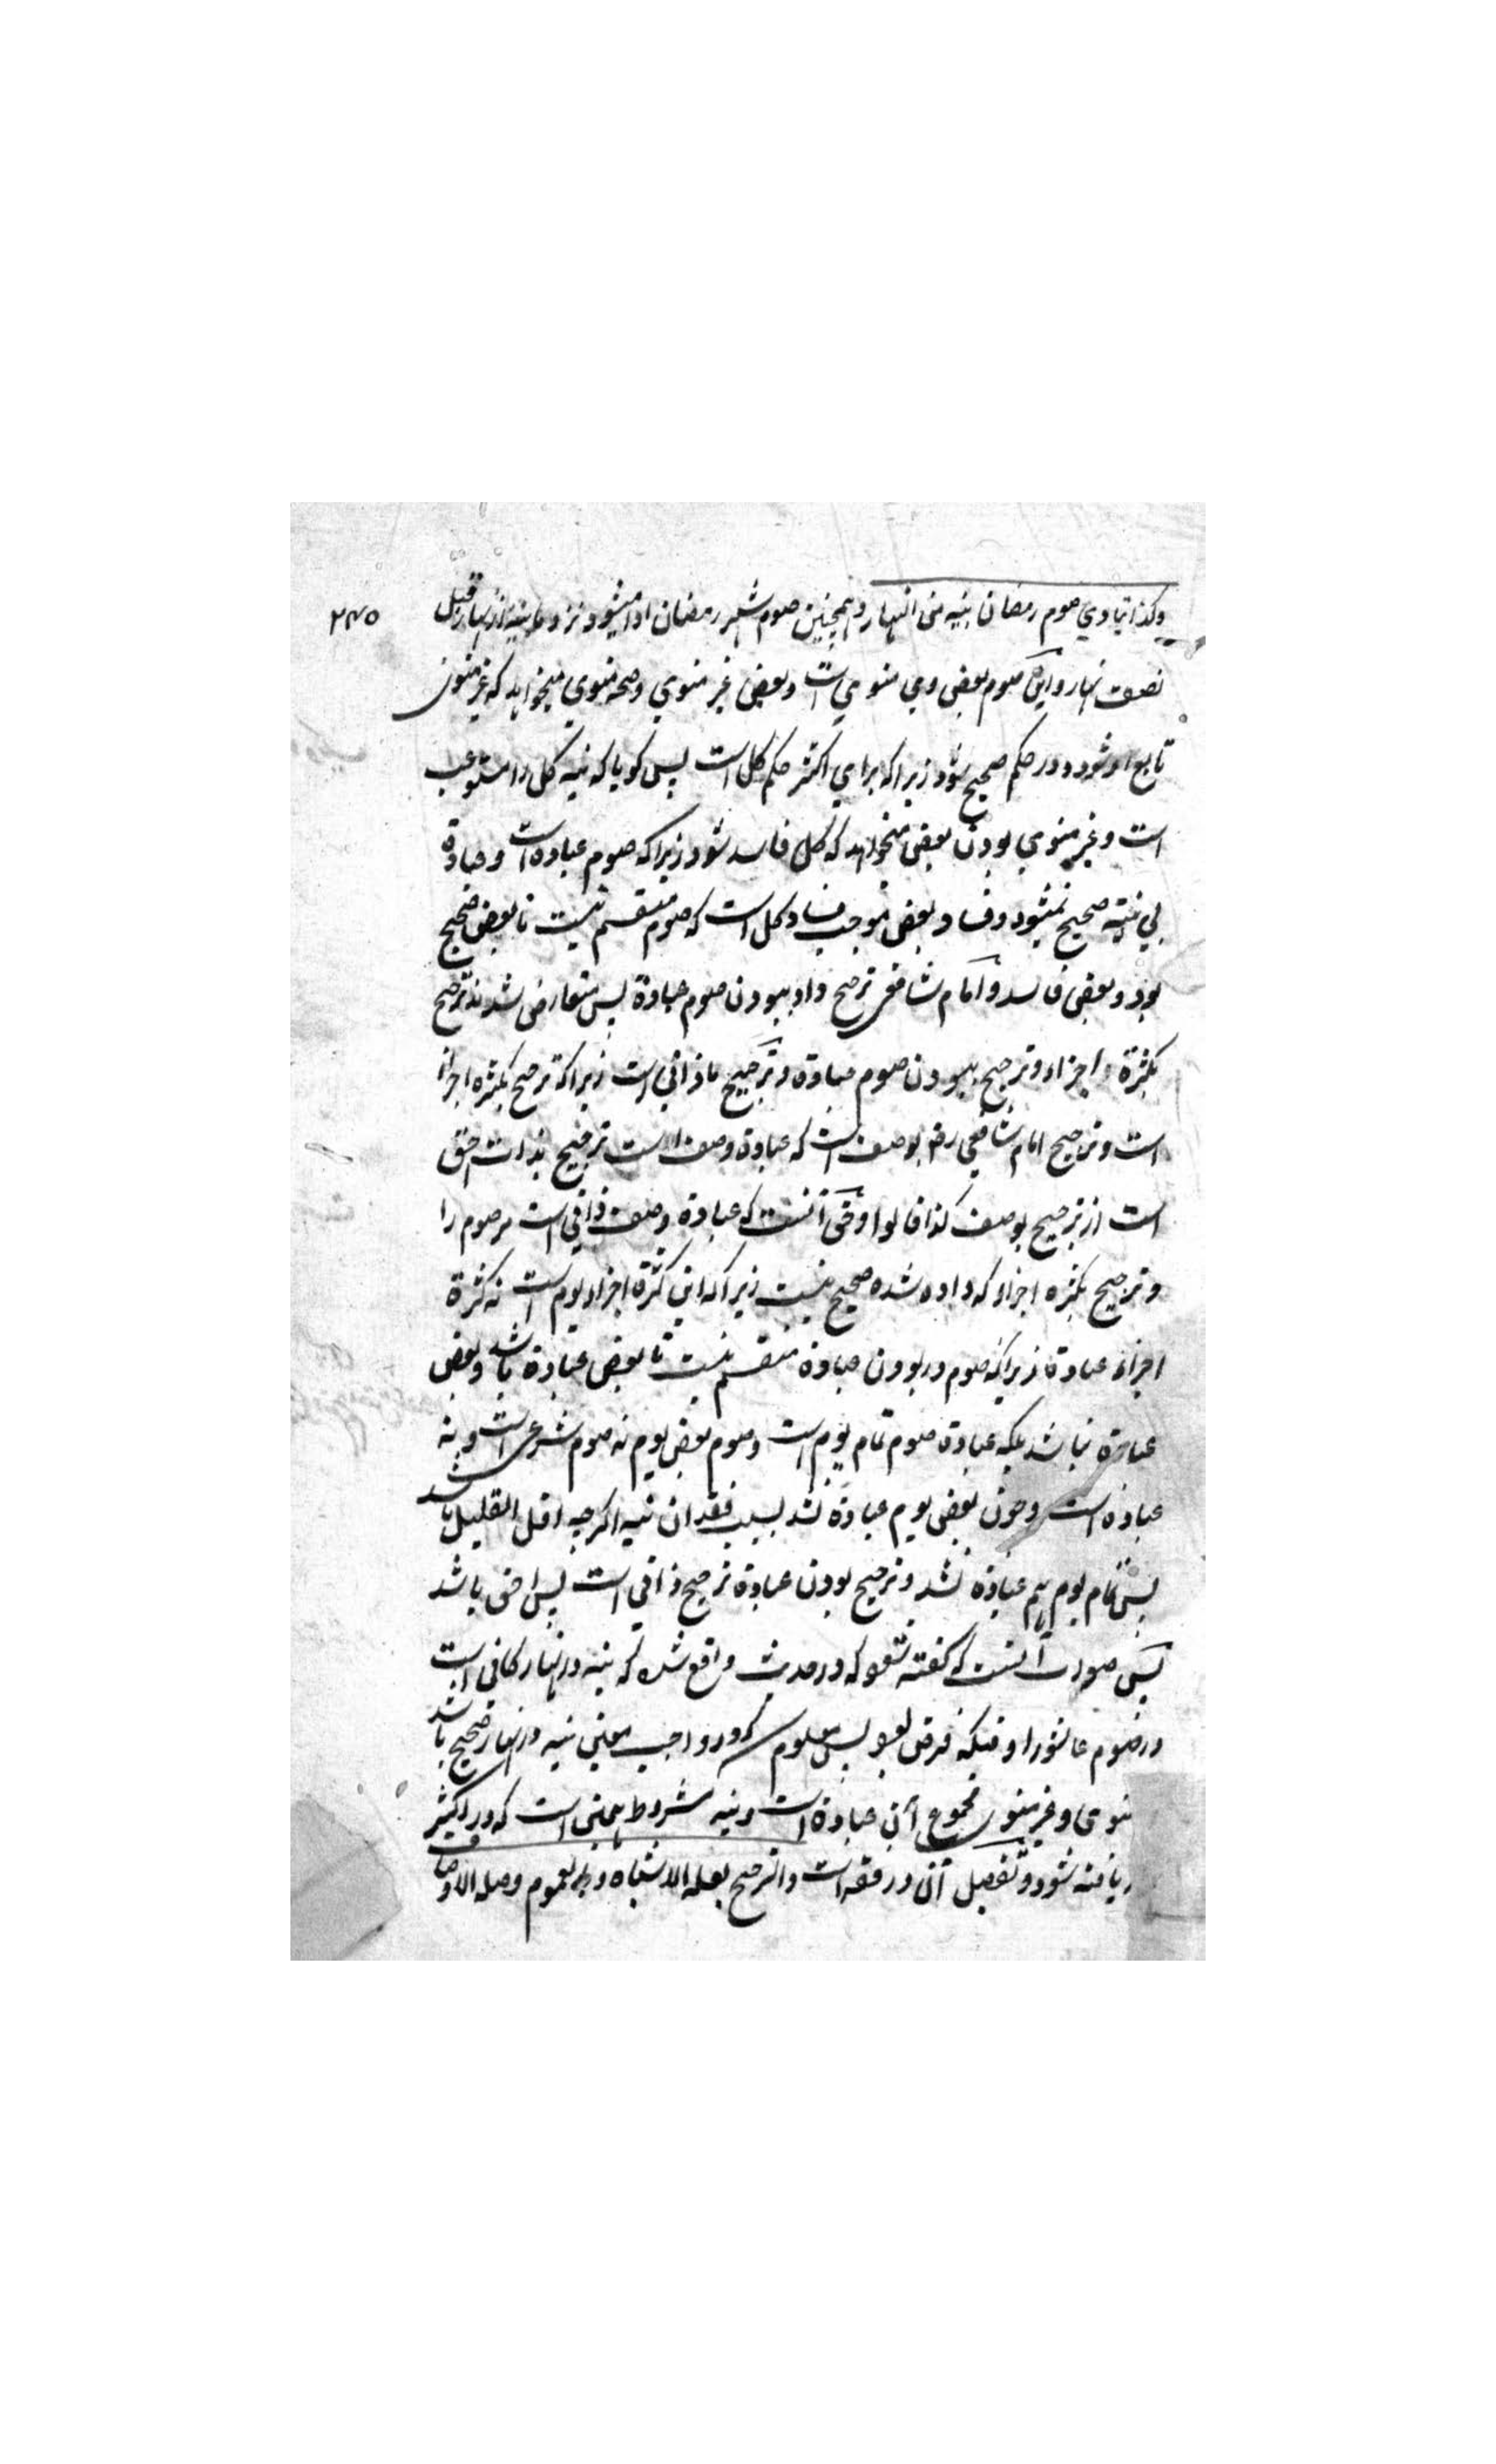 وكذا يتادي صوم رمضان بنية من النهار وهمچنين صوم شهر رمضان ادا ميشود نزد ما بنية از نهار قبل
۲۳۵
نصف نهار و اين صوم بعض وي منوي است و بعض غير منوي وصحة منوي ميخواهد كه غير منوي
تابع او شود و در حكم صحيح شود زيراكه براي اكثر حكم كل است پس كويا كه نيه كل را مستوعب
است و غير منوي بودن بعض ميخواهد كه كل فاسد شود زيراكه صوم عبادة است و عبادة
بي نيته صحيح نميشود و فساد بعض موجب فساد كل است كه صوم منقسم نيست تا بعض صحيح
بود و بعض فاسد و امام شافعي ترجيح داد ببودن صوم عبادة پس متعارض شدند ترجيح
بكثرة اجزاء و ترجيح ببودن صوم عبادة و ترجيح ما ذاتي است زيراكه ترجيح بكثره اجزا
است و ترجيح امام شافعي رض بوصف است كه عبادة وصف است ترجيح بذات احق
است از ترجيح بوصف كذا قالوا و حق آنست كه عبادة وصف ذاتي است مر صوم را
و ترجيح بكثره اجزاء كه داده شده صحيح نيست زيراكه اين كثرة اجزاء يوم است نه كثرة
اجزاء عبادة زيراكه صوم در بودن عبادة منقسم نيست تا بعض عبادة باشد و بعض
عبادة نباشد بلكه عبادة صوم تمام يوم است و صوم بعض يوم نه صوم شرعي است و نه
عبادة است و چون بعض يوم عبادة نشد بسبب فقدان نيه اكرچه اقل القليل باشد
پس تمام يوم هم عبادة نشد و ترجيح بودن عبادة ترجيح ذاتي است پس احق باشد
پس صورت آنست كه كفته شود كه در حديث واقع شده كه نيه در نهار كافي است
در صوم عاشورا وقتيكه فرض بود پس معلوم شد كه در واجب معين نيه در نهار صحيح باشد
منوي و غير منوي مجموع آن عبادة است و نيه مشروط همين است كه در اكثر
يافته شود و تفصيل آن در فقه است والترجيح بعله الاشتباه و بالعموم وصله الاوصاف